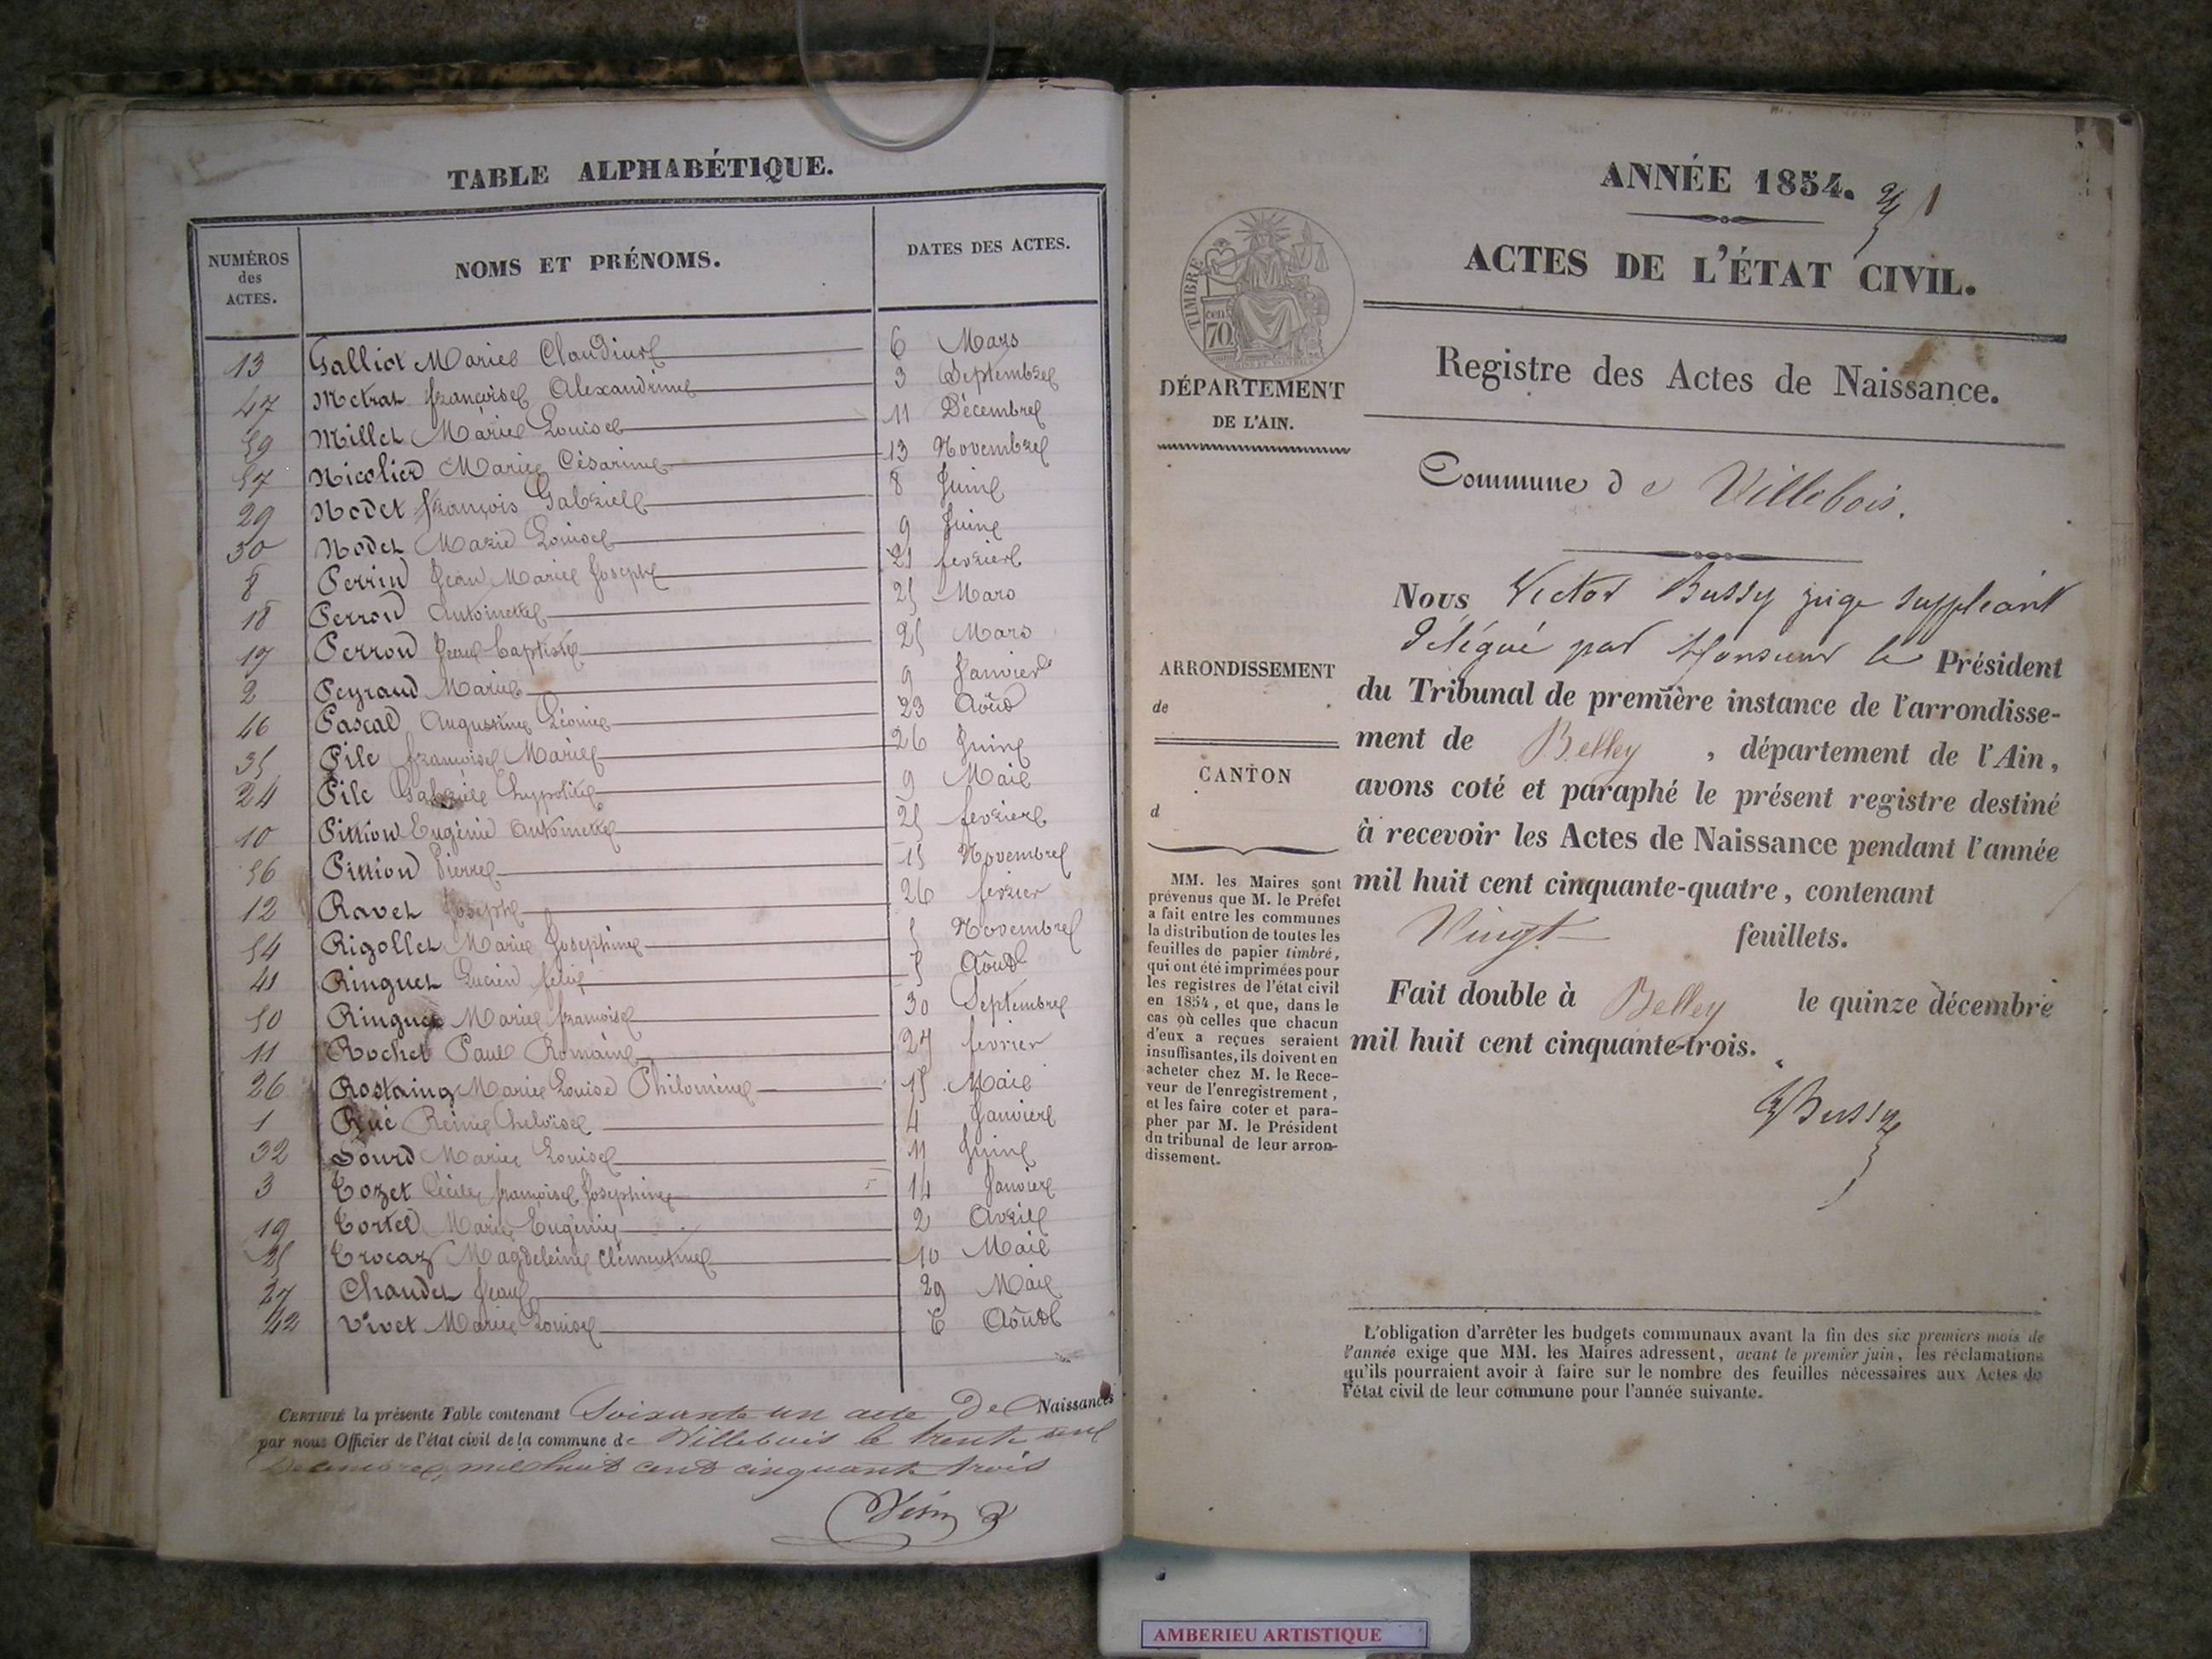 TABLE ALPHABÉTIQUE.
NUMÉROS des ACTES. NOMS ET PRÉNOMS. DATES DES ACTES.
13 Galliot Marie Claudine 6 Mars
47 Metrat françoise Alexandrine 3 Septembre
59 Millet Marie Louise 11 Décembre
57 Nicolier Marie Césarine 13 Novembre
29 Nodet françois Gabriel 8 Juin
30 Nodet Marie Louise 9 Juin
8 Perrin Jean Marie Joseph 21 fevrier
18 Perron Antoinette 25 Mars
17 Perron Jean baptiste 25 Mars
2 Peyraud Marie 9 Janvier
46 Pascal Augustine Léonie 23 Août
35 Pile françoise Marie 26 Juin
24 Pile Gabriele hypolite 9 Mai
10 Pittion Eugénie Antoinette 25 fevrier
56 Pittion Pierre 15 Novembre
12 Ravet Joseph 26 fevrier
54 Rigollet Marie Josephine 5 Novembre
41 Ringuet Lucien felix 5 Août
50 Ringuet Marie françoise 30 Septembre
11 Rochet Paul Romain 27 fevrier
26 Rostaing Marie Louise Philomène 15 Mai
1 Rué Reine heloïse 4 Janvier
32 Sourd Marie Louise 11 Juin
3 Tozet Cécile françoise Josephine 14 Janvier
19 Tortel Marie Eugénie 2 Avril
25 Trocaz Magdeleine Clémentine 10 Mai
27 Chaudet Jean 29 Mai
42 Vivet Marie Louise 6 Août
CERTIFIÉ la présente Table contenant Soixante un acte De Naissances
par nous Officier de l'état civil de la commune de Villebois le trente un
Décembre, mil huit cent cinquante trois
ANNÉE 1854. 1
ACTES DE L'ÉTAT CIVIL.
TIMBRE
70 cen.
DÉPARTEMENT
DE L'AIN.
Registre des Actes de Naissance.
Commune de Villebois.
ARRONDISSEMENT
de
CANTON
d
Nous Victor Bussy juge suppléant
délégué par Monsieur le Président
du Tribunal de première instance de l'arrondisse-
ment de Belley , département de l'Ain,
avons coté et paraphé le présent registre destiné
à recevoir les Actes de Naissance pendant l'année
mil huit cent cinquante-quatre, contenant
Vingt feuillets.
Fait double à Belley le quinze décembre
mil huit cent cinquante-trois.
VBussy
MM. les Maires sont
prévenus que M. le Préfet
a fait entre les communes
la distribution de toutes les
feuilles de papier timbré,
qui ont été imprimées pour
les registres de l'état civil
en 1854, et que, dans le
cas où celles que chacun
d'eux a reçues seraient
insuffisantes, ils doivent en
acheter chez M. le Rece-
veur de l'enregistrement,
et les faire coter et para-
pher par M. le Président
du tribunal de leur arron-
dissement.
L'obligation d'arrêter les budgets communaux avant la fin des six premiers mois de
l'année exige que MM. les Maires adressent, avant le premier juin, les réclamations
qu'ils pourraient avoir à faire sur le nombre des feuilles nécessaires aux Actes de
l'état civil de leur commune pour l'année suivante.
AMBERIEU ARTISTIQUE